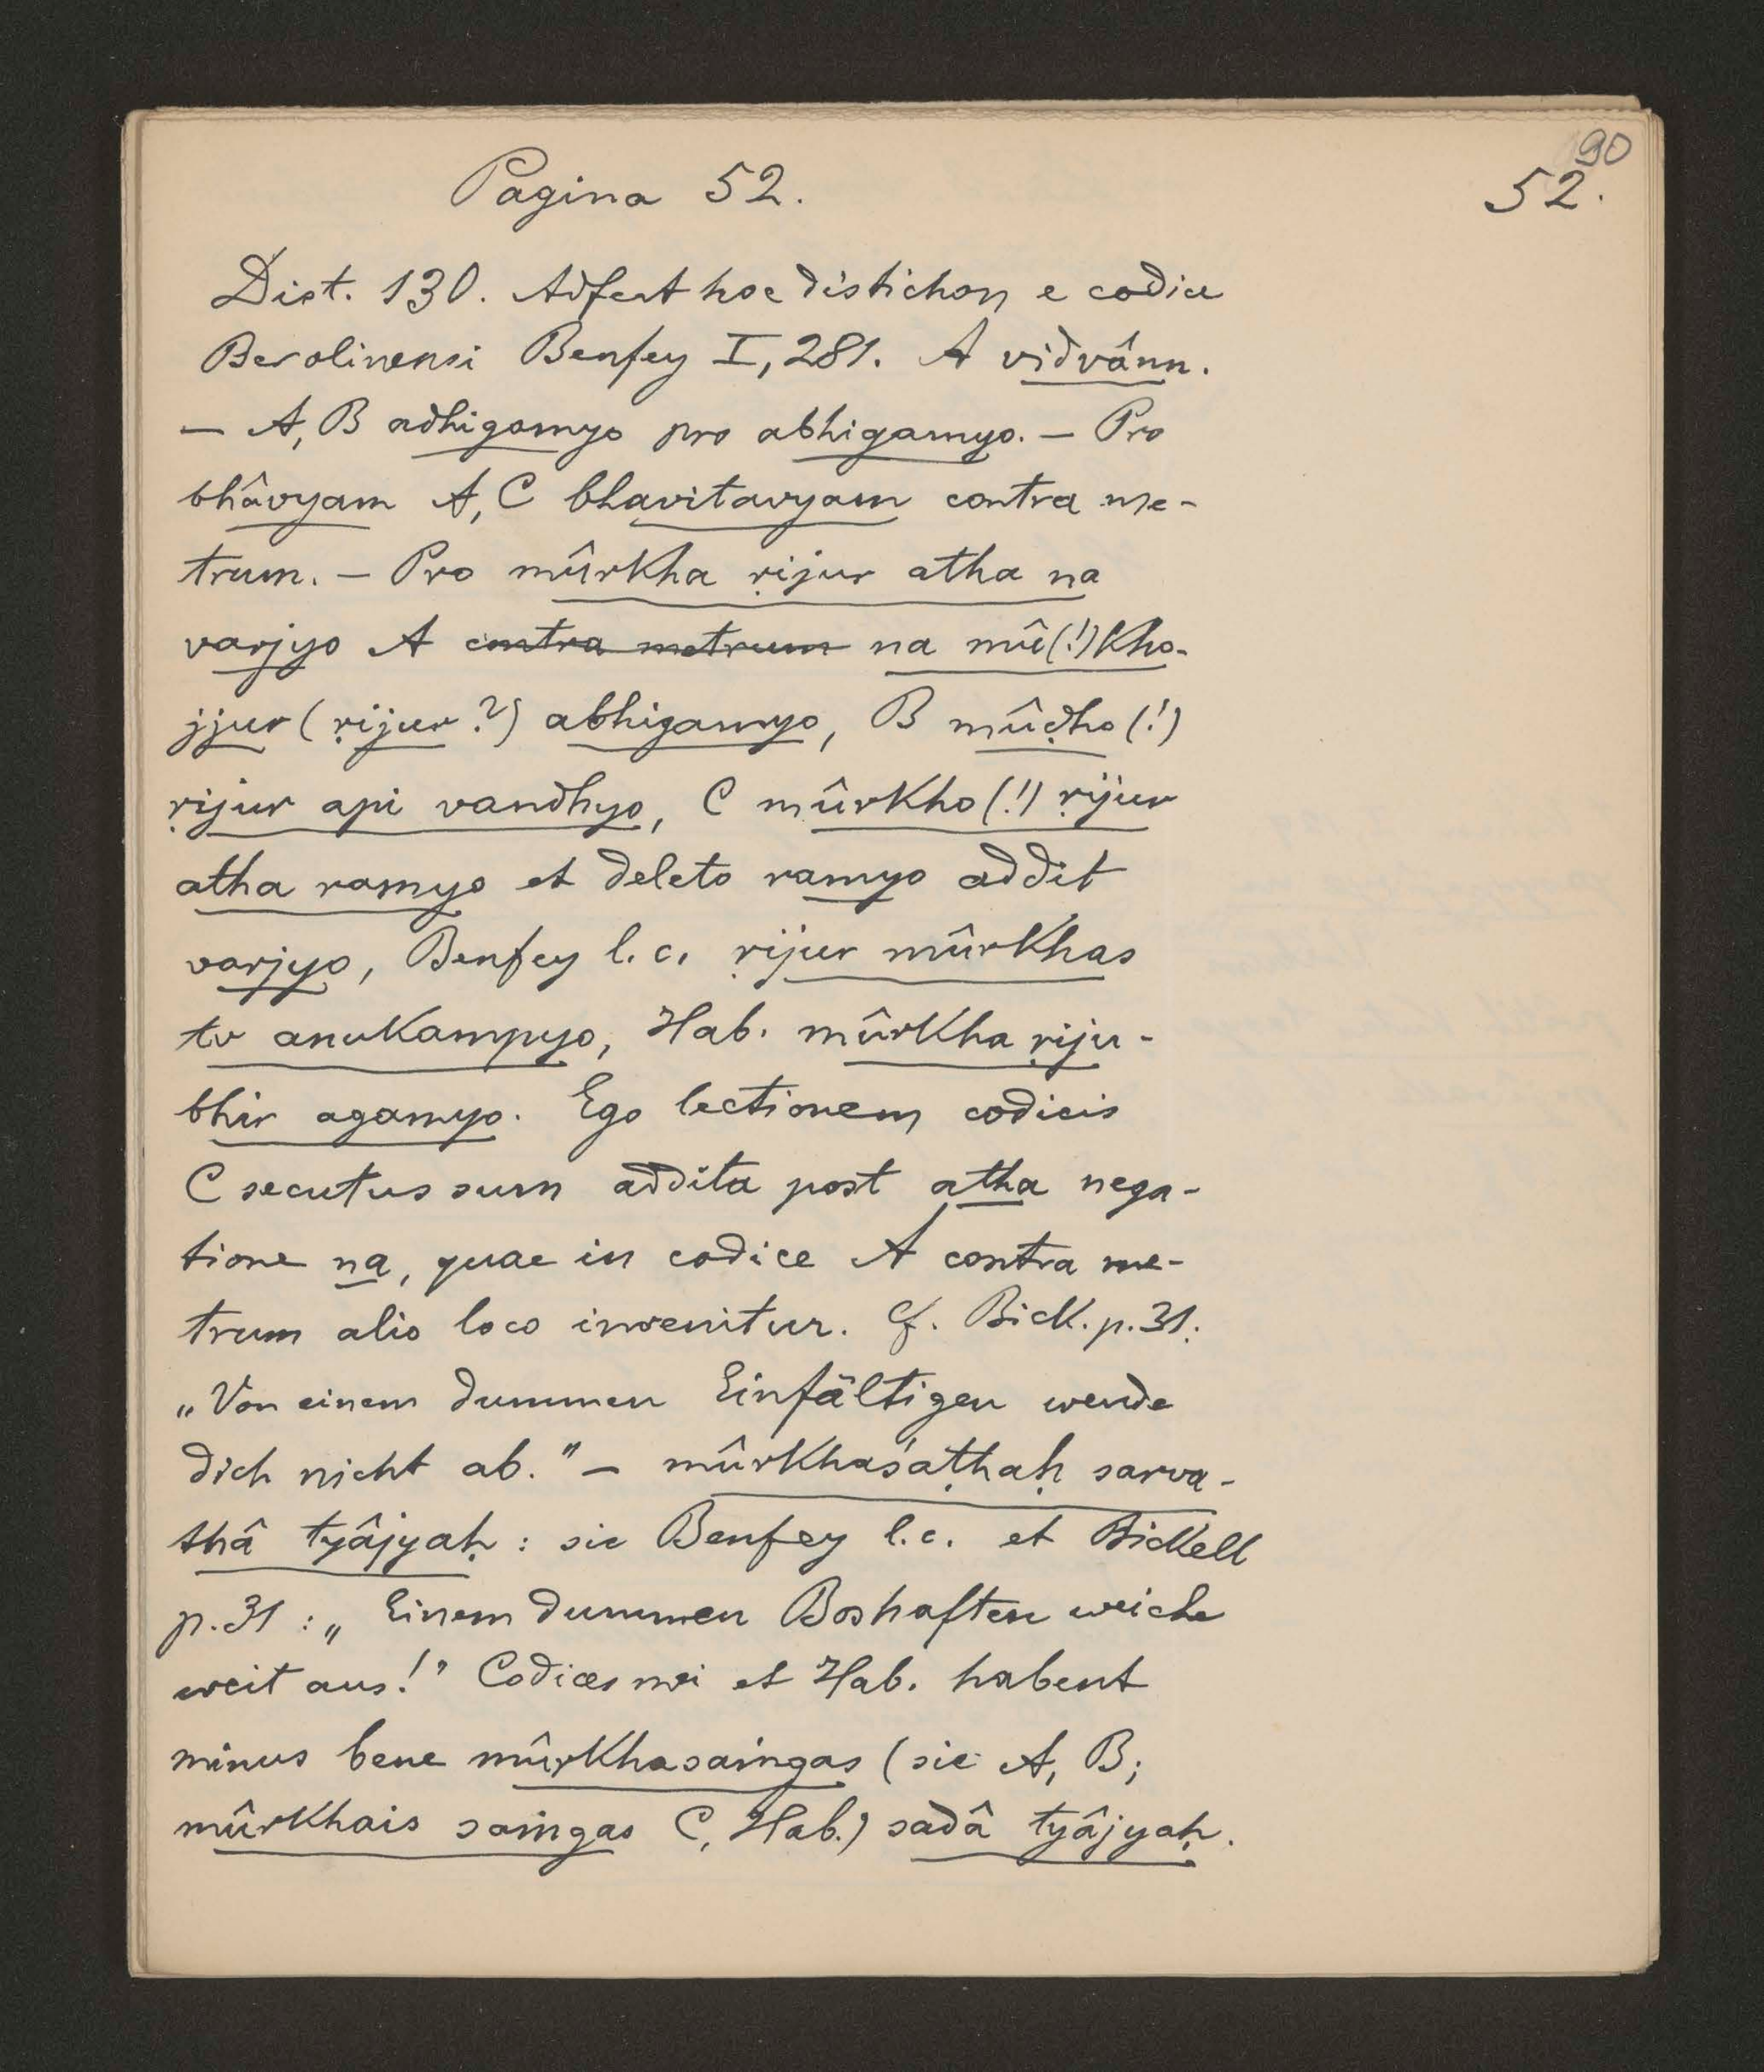 90
Pagina 52.
52.
Dist. 130. Adfert hoc distichon e codice
Berolinensi Benfey I, 281. A vidvânn.
— A, B adhigamyo pro abhigamyo. — Pro
bhâvyam A, C bhavitavyam contra me-
trum. — Pro mûrkha ṛijur atha na
varjyo A contra metrum na mû(!)kho-
jjur (ṛijur?) abhigamyo, B mûḍho (!)
ṛijur api vandhyo, C mûrkho (!) ṛijur
atha ramyo et deleto ramyo addit
varjyo, Benfey l. c. ṛijur mûrkhas
tv anukampyo, Hab. mûrkha ṛiju-
bhir agamyo. Ego lectionem codicis
C secutus sum addita post atha nega-
tione na, quae in codice A contra me-
trum alio loco invenitur. Cf. Bick. p. 31:
„Von einem dummen Einfältigen wende
dich nicht ab." — mûrkhaśaṭhaḥ sarva-
thâ tyâjyaḥ : sic Benfey l. c. et Bickell
p. 31 : „Einem dummen Boshaften weiche
weit aus!" Codices mei et Hab. habent
minus bene mûrkhasaṅgas (sic A, B;
mûrkhais saṅgas C, Hab.) sadâ tyâjyaḥ.